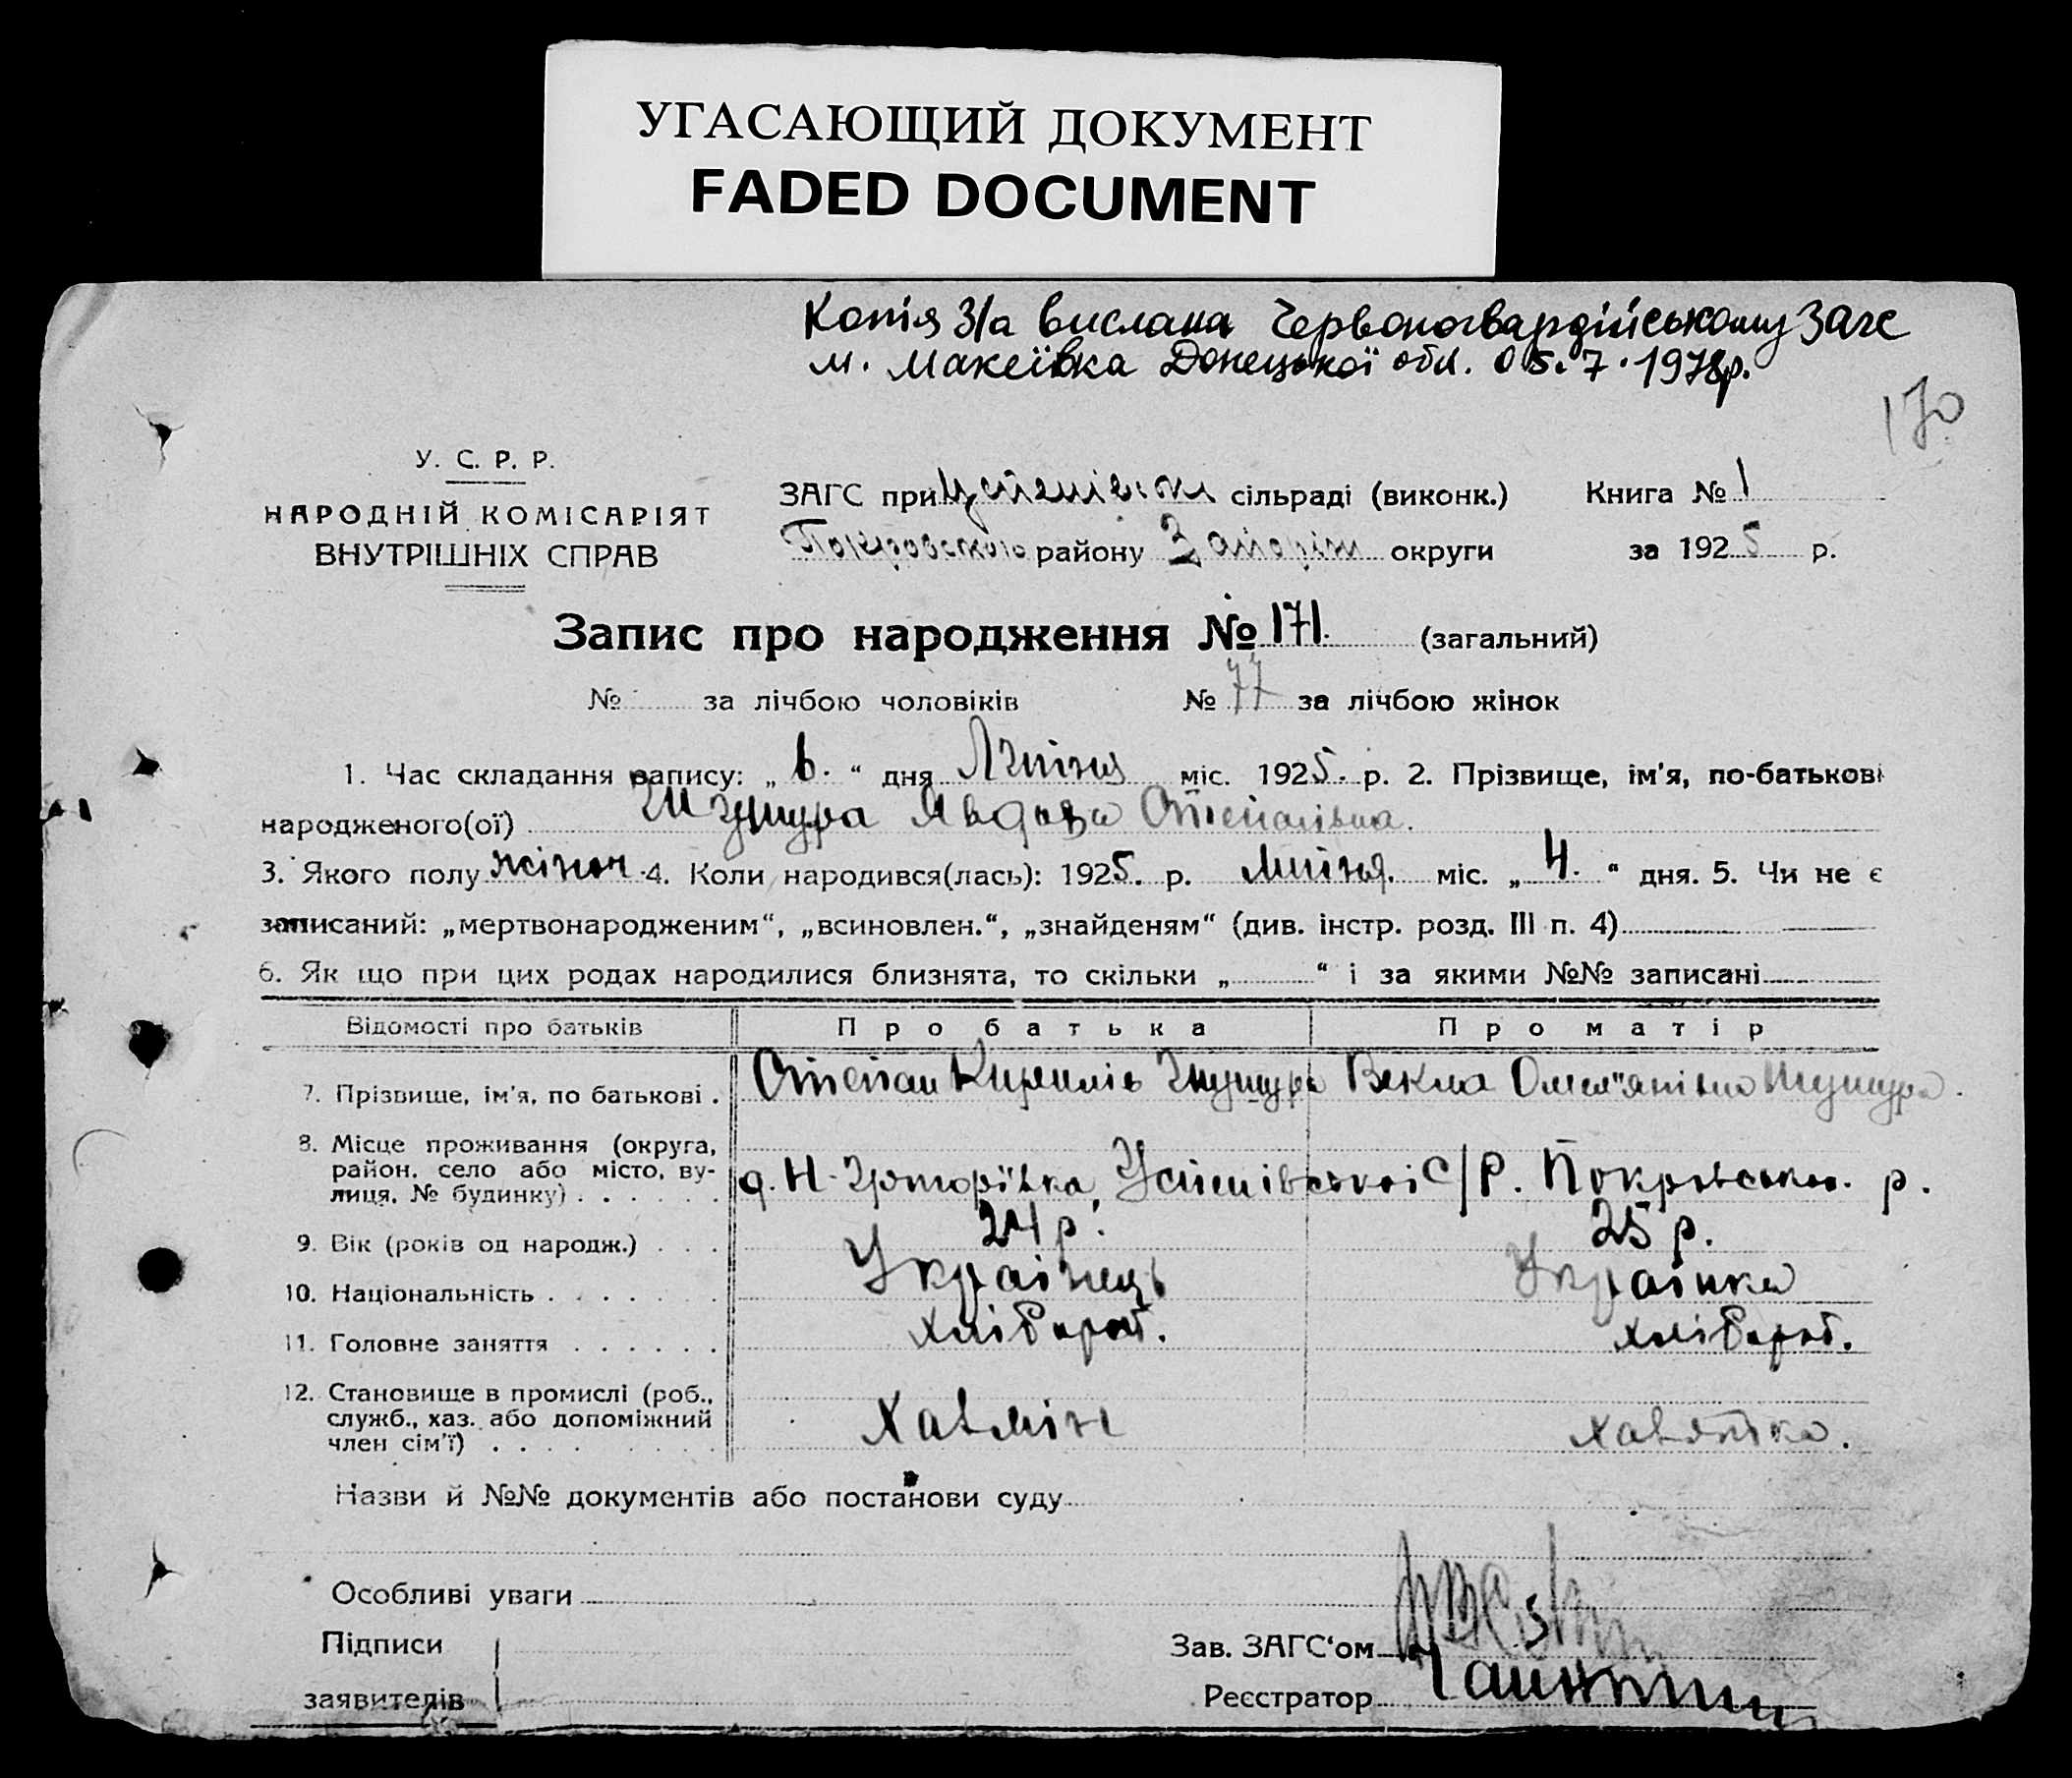 УГАСАЮЩИЙ ДОКУМЕНТ
FADED DOCUMENT
Копія З/а вислана Червоногвардійському Загс
м. Макеївка Донецької обл. 05.7.1978р.
170
У. С. Р. Р.
НАРОДНІЙ КОМІСАРІЯТ
ВНУТРІШНІХ СПРАВ
ЗАГС при Успенівск сільраді (виконк.) Книга № 1
Покровського району Запоріж округи за 1925 р.
Запис про народження № 171. (загальний)
№ за лічбою чоловіків № 77 за лічбою жінок
1. Час складання запису: „ 6. “ дня Липіня міс. 1925. р. 2. Прізвище, ім'я, по-батькові
народженого(ої) Явдоха Степанівна.
3. Якого полу жіноч. 4. Коли народився(лась): 1925. р. липіня. міс. „ 4. “ дня. 5. Чи не є
записаний: „мертвонародженим“, „всиновлен.“, „знайденям“ (див. інстр. розд. III п. 4)
6. Як що при цих родах народилися близнята, то скільки „ “ і за якими №№ записані
Відомості про батьків Про батька Про матір
7. Прізвище, ім'я, по батькові . Степан Кирилів Векла Омел"янівна
8. Місце проживання (округа,
район, село або місто, ву-
лиця, № будинку) . . . . . . д. Н-Григорівка, Успенівської С/Р. Покровськ. р.
9. Вік (років од народж.) . . . 24 р. 25 р.
10. Національність . . . . . . . Українець Українка
11. Головне заняття . . . . . . хлібороб. хлібороб.
12. Становище в промислі (роб.,
служб., хаз. або допоміжний
член сім'ї) . . . . . . . . . Хазяїн хазяйка.
Назви й №№ документів або постанови суду
Особливі уваги
Підписи
заявителів
Зав. ЗАГС‘ом
Реєстратор